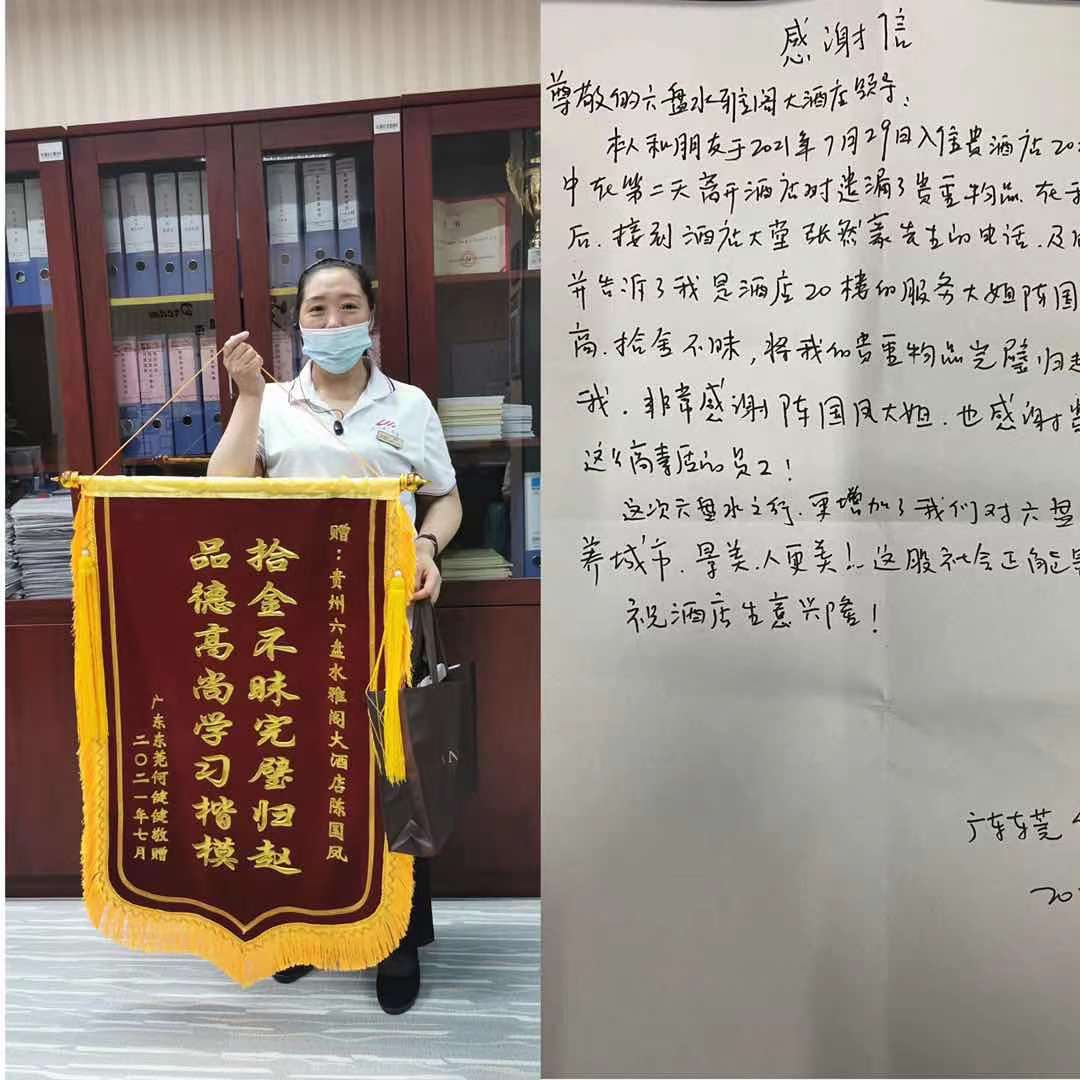 赠：贵州六盘水雅阁大酒店陈国凤
拾金不昧完璧归赵
品德高尚学习楷模
广东东莞何健健敬赠
二〇二一年七月
感谢信
尊敬的六盘水雅阁大酒店领导：
本人和朋友于2021年7月29日入住贵酒店20
中在第二天离开酒店时遗漏了贵重物品.在
后.接到酒店大堂张然豪先生的电话.及
并告诉了我是酒店20楼的服务大姐陈国
高.拾金不昧，将我的贵重物品完璧归赵
我.非常感谢陈国凤大姐.也感谢贵
这么高素质的员工！
这次六盘水之行.更增加了我们对六盘
养城市.景美.人更美！..这股社会正能量
祝酒店生意兴隆！
广东东莞
202